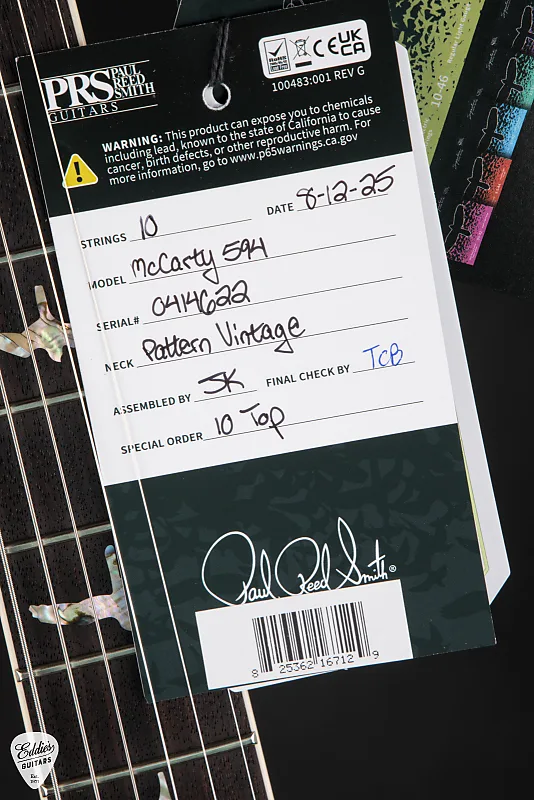 PRS PAUL REED SMITH
GUITARS
RoHS
CE UK CA
100483:001 REV G
WARNING: This product can expose you to chemicals
including lead, known to the state of California to cause
cancer, birth defects, or other reproductive harm. For
more information, go to www.p65warnings.ca.gov
STRINGS 10 DATE 8-12-25
MODEL McCarty 594
SERIAL# 0414622
NECK Pattern Vintage
ASSEMBLED BY JK FINAL CHECK BY TCB
SPECIAL ORDER 10 Top
Paul Reed Smith®
8 25362 16712 9
10-46
Eddie's
GUITARS